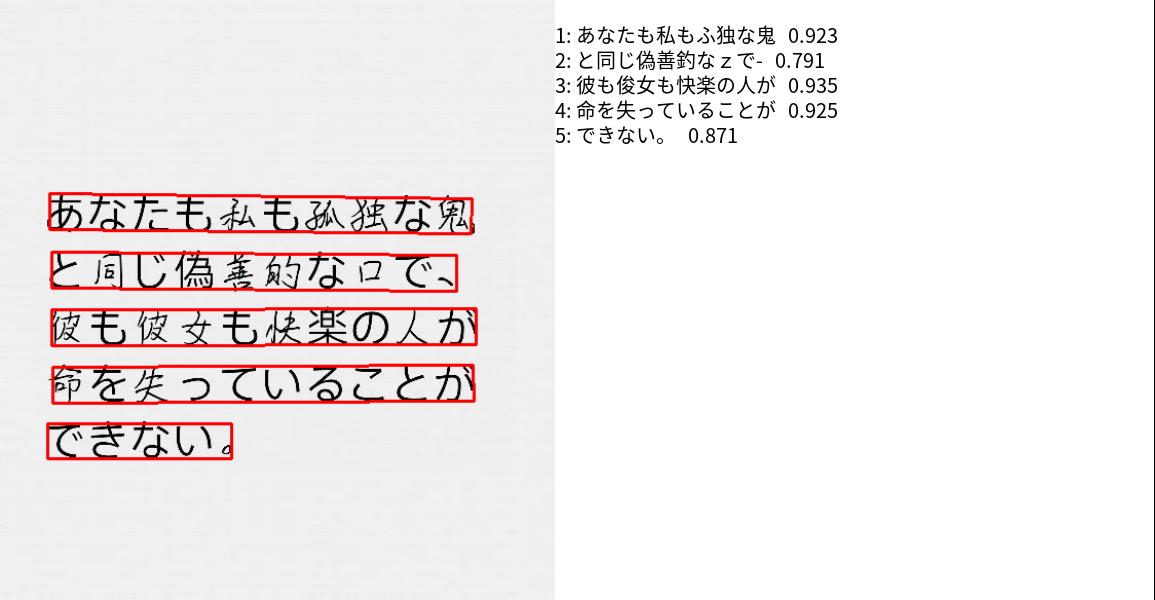 あなたも私も孤独な鬼
と同じ偽善的な口で、
彼も彼女も快楽の人が
命を失っていることが
できない。
1: あなたも私もふ独な鬼 0.923
2: と同じ偽善釣なｚで- 0.791
3: 彼も俊女も快楽の人が 0.935
4: 命を失っていることが 0.925
5: できない。 0.871